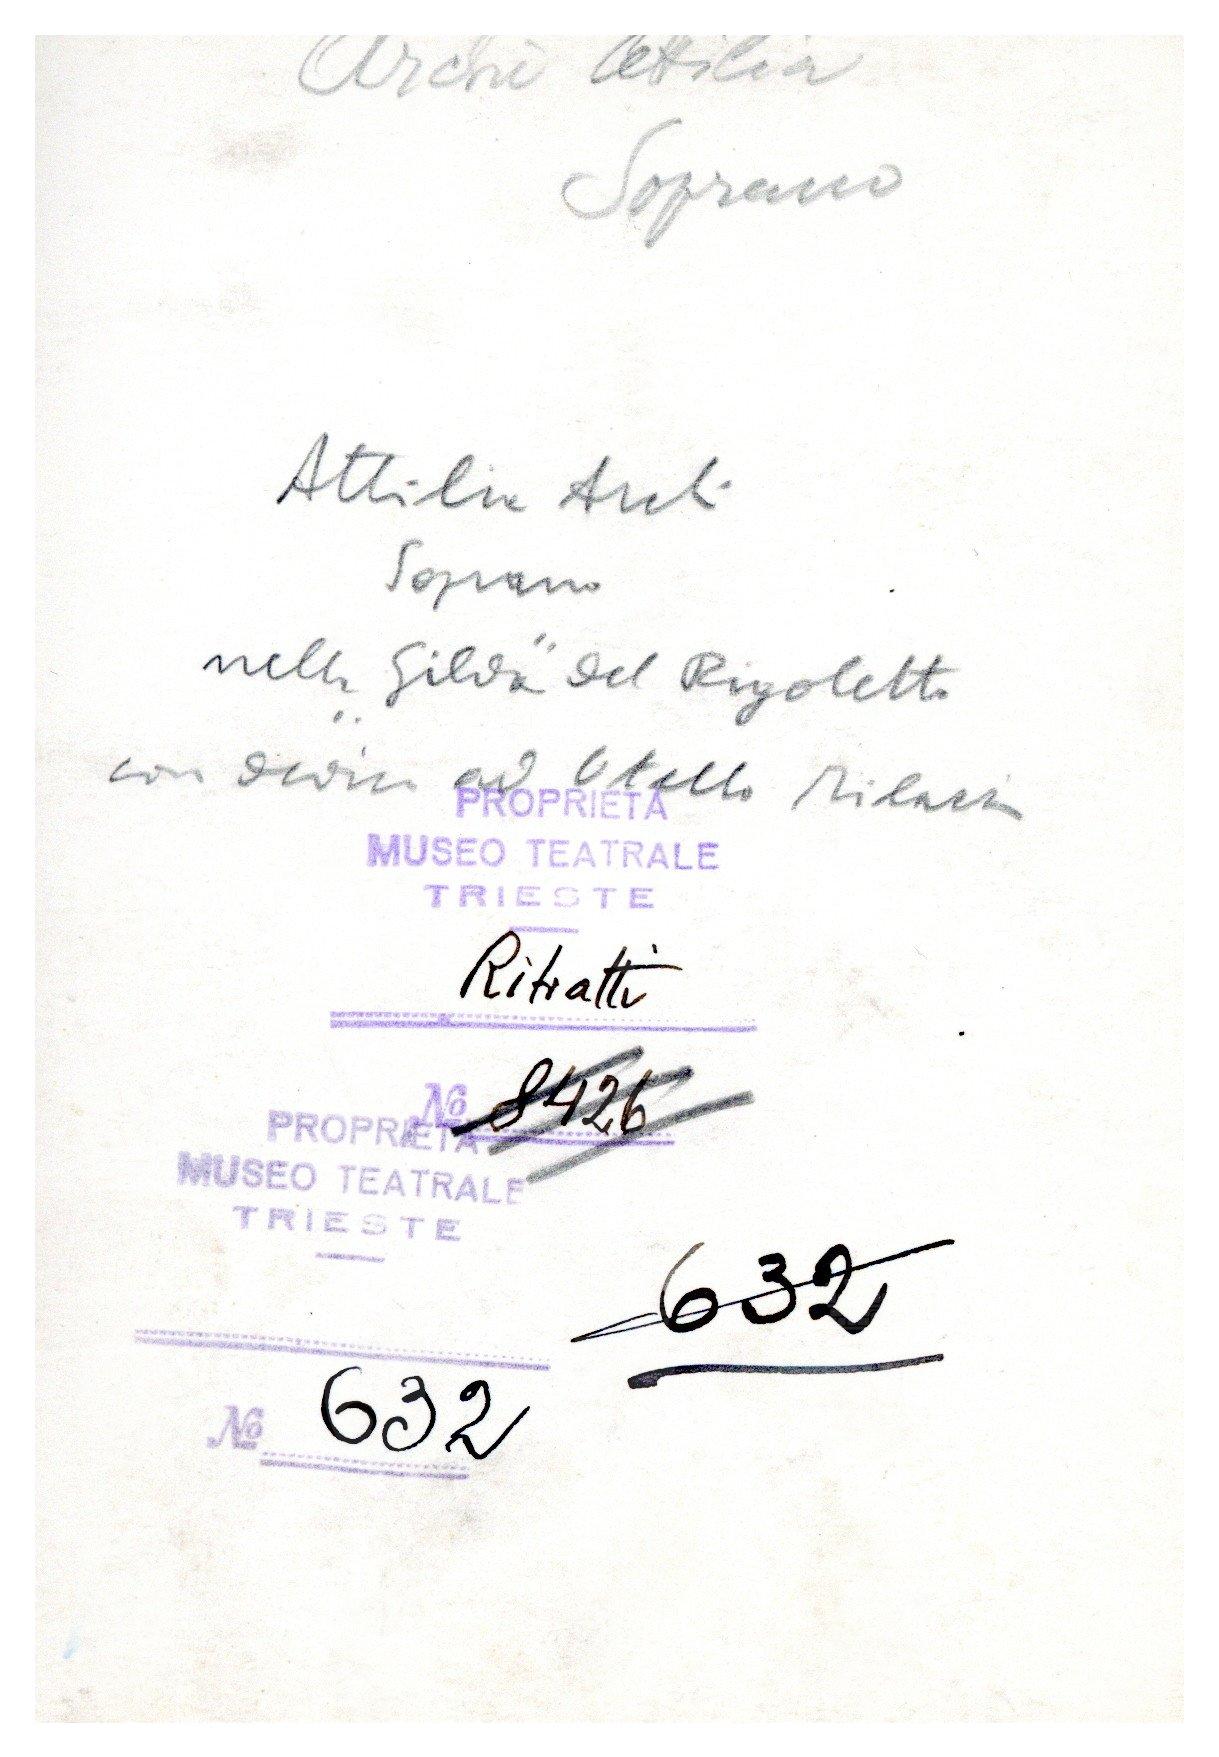 Archi Attilia
Soprano
Attilia Archi
Soprano
nella "Gilda" del Rigoletto
con dedica ad Otello
PROPRIETÀ
MUSEO TEATRALE
TRIESTE
Ritratti
№ 8426
PROPRIETÀ
MUSEO TEATRALE
TRIESTE
632
№ 632